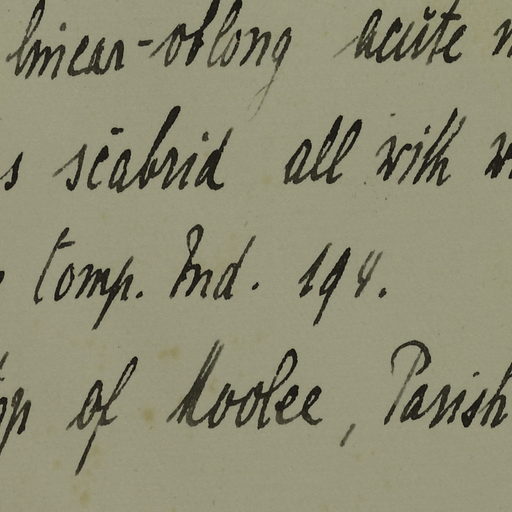 linear-oblong acute
scabrid all with
Comp. Ind. 194.
of Moolee, Parish